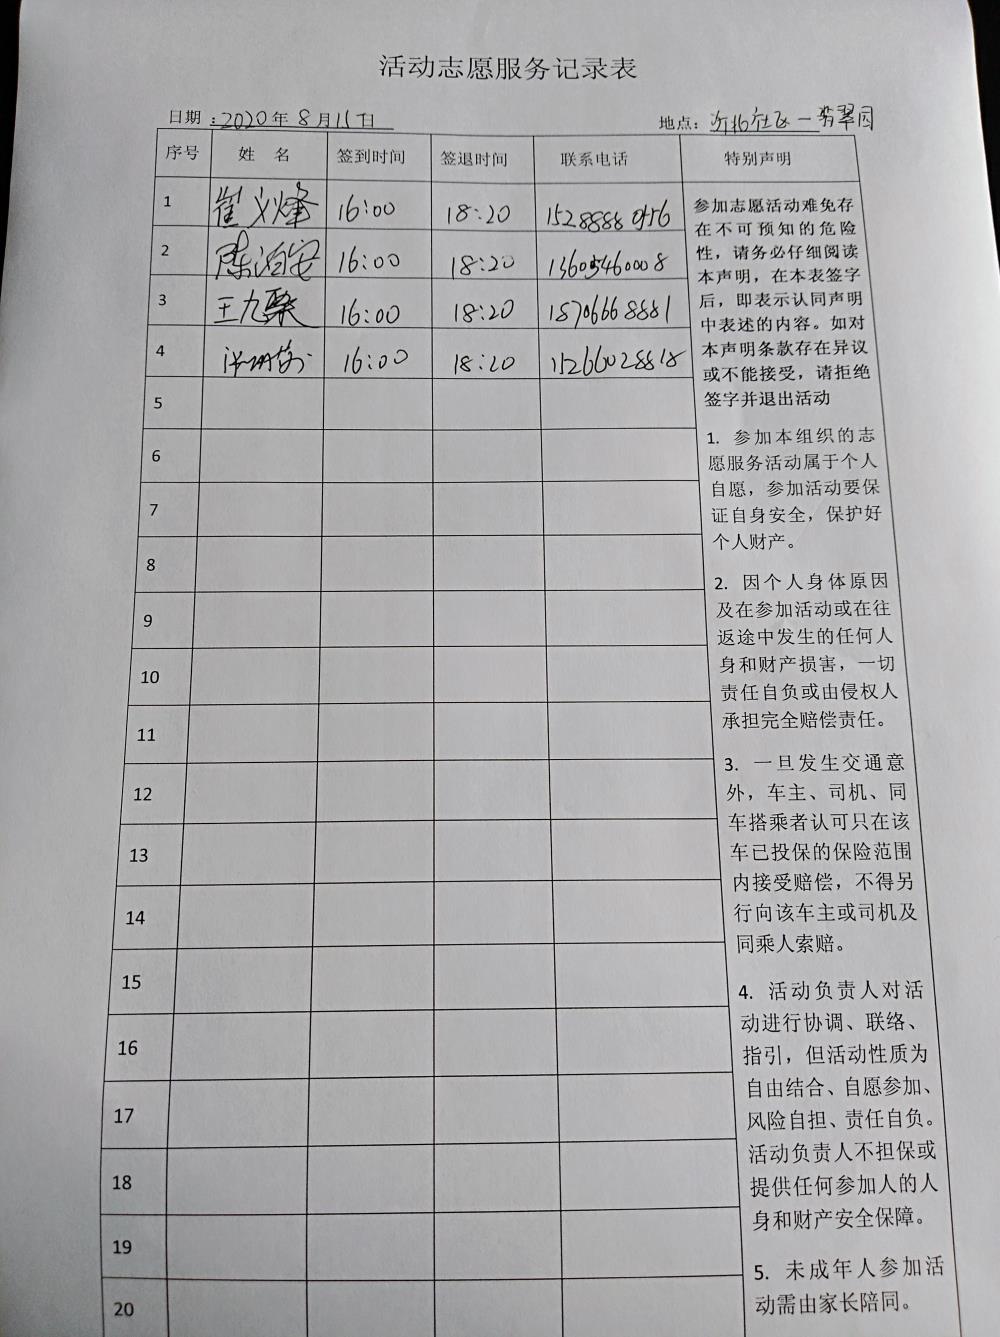 活动志愿服务记录表
日期：2020年8月15日 地点：社区一翡翠园
序号 姓 名 签到时间 签退时间 联系电话 特别声明
1 崔义烽 16:00 18:20 15288880456
2 陈治安 16:00 18:20 13605460008
3 王九聚 16:00 18:20 15706668881
4 16:00 18:20 15266028818
5
6
7
8
9
10
11
12
13
14
15
16
17
18
19
20
参加志愿活动难免存
在不可预知的危险
性，请务必仔细阅读
本声明，在本表签字
后，即表示认同声明
中表述的内容。如对
本声明条款存在异议
或不能接受，请拒绝
签字并退出活动
1. 参加本组织的志
愿服务活动属于个人
自愿，参加活动要保
证自身安全，保护好
个人财产。
2. 因个人身体原因
及在参加活动或在往
返途中发生的任何人
身和财产损害，一切
责任自负或由侵权人
承担完全赔偿责任。
3. 一旦发生交通意
外，车主、司机、同
车搭乘者认可只在该
车已投保的保险范围
内接受赔偿，不得另
行向该车主或司机及
同乘人索赔。
4. 活动负责人对活
动进行协调、联络、
指引，但活动性质为
自由结合、自愿参加、
风险自担、责任自负。
活动负责人不担保或
提供任何参加人的人
身和财产安全保障。
5. 未成年人参加活
动需由家长陪同。